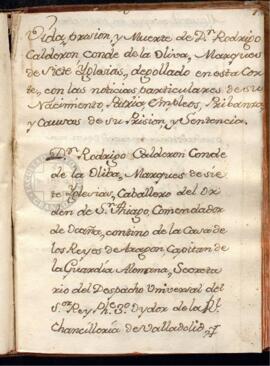 Vida, prision, y Muerte de Dn. Rodrigo
Calderon Conde de la Oliva, Marques
de Siete Yglesias, degollado en esta Cor-
te, con las noticias particulares de su
Nacimiento, Patria, Empleos, Pribanza,
y causas de su Prision, y Sentencia.
Dn. Rodrigo Calderon Conde
de la Oliba, Marques de sie-
te Yglesias, Caballero del Or-
den de Sn. Thiago, Comendador
de Ocaña, contino de la Casa de
los Reyes de Aragon Capitan de
la Guardia Alemana, Secreta-
rio del Despacho Universal del
Sor. Rey Phe. 3o. Oydor de la Rl.
Chancilleria de Valladolid,